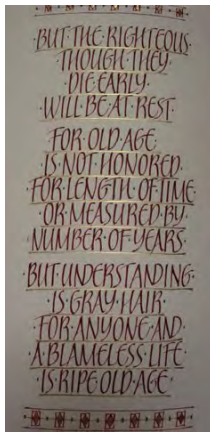 BUT THE RIGHTEOUS
THOUGH THEY
DIE EARLY
WILL BE AT REST
FOR OLD AGE
IS NOT HONORED
FOR LENGTH OF TIME
OR MEASURED BY
NUMBER OF YEARS
BUT UNDERSTANDING
IS GRAY HAIR
FOR ANYONE AND
A BLAMELESS LIFE
IS RIPE OLD AGE